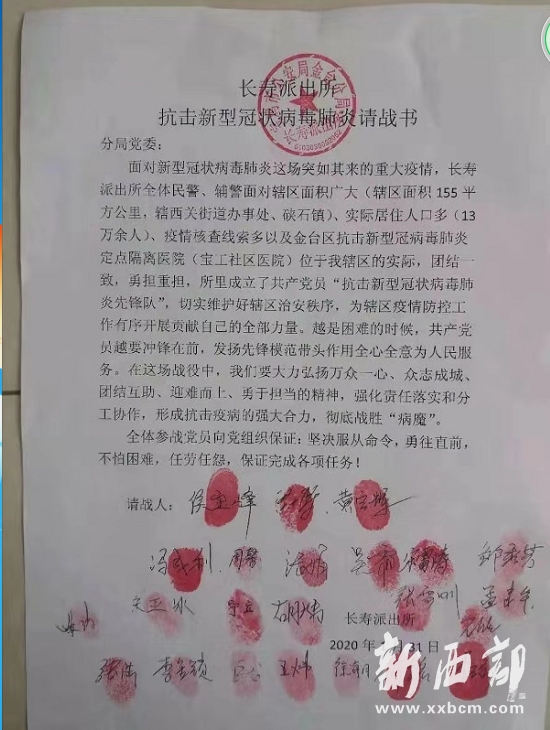 长寿派出所
抗击新型冠状病毒肺炎请战书
分局党委：
面对新型冠状病毒肺炎这场突如其来的重大疫情，长寿
派出所全体民警、辅警面对辖区面积广大（辖区面积 155 平
方公里，辖西关街道办事处、硖石镇）、实际居住人口多（13
万余人）、疫情核查线索多以及金台区抗击新型冠病毒肺炎
定点隔离医院（宝工社区医院）位于我辖区的实际，团结一
致，勇担重担，所里成立了共产党员“抗击新型冠状病毒肺
炎先锋队”，切实维护好辖区治安秩序，为辖区疫情防控工
作有序开展贡献自己的全部力量。越是困难的时候，共产党
员越要冲锋在前，发扬先锋模范带头作用全心全意为人民服
务。在这场战役中，我们要大力弘扬万众一心、众志成城、
团结互助、迎难而上、勇于担当的精神，强化责任落实和分
工协作，形成抗击疫病的强大合力，彻底战胜“病魔”。
全体参战党员向党组织保证：坚决服从命令，勇往直前，
不怕困难，任劳任怨，保证完成各项任务！
请战人：
长寿派出所
2020 年 月 31 日
新西部
www.xxbcm.com